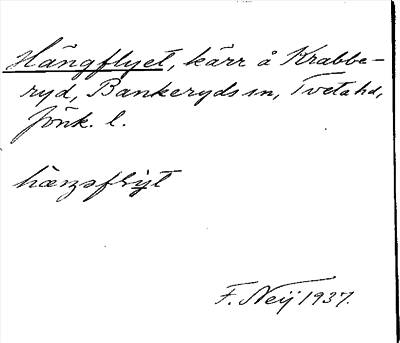 Hängflyet, kärr å Krabbe-
ryd, Bankeryds sn, Tveta hd,
Jönk. l.
F. Neij 1937.